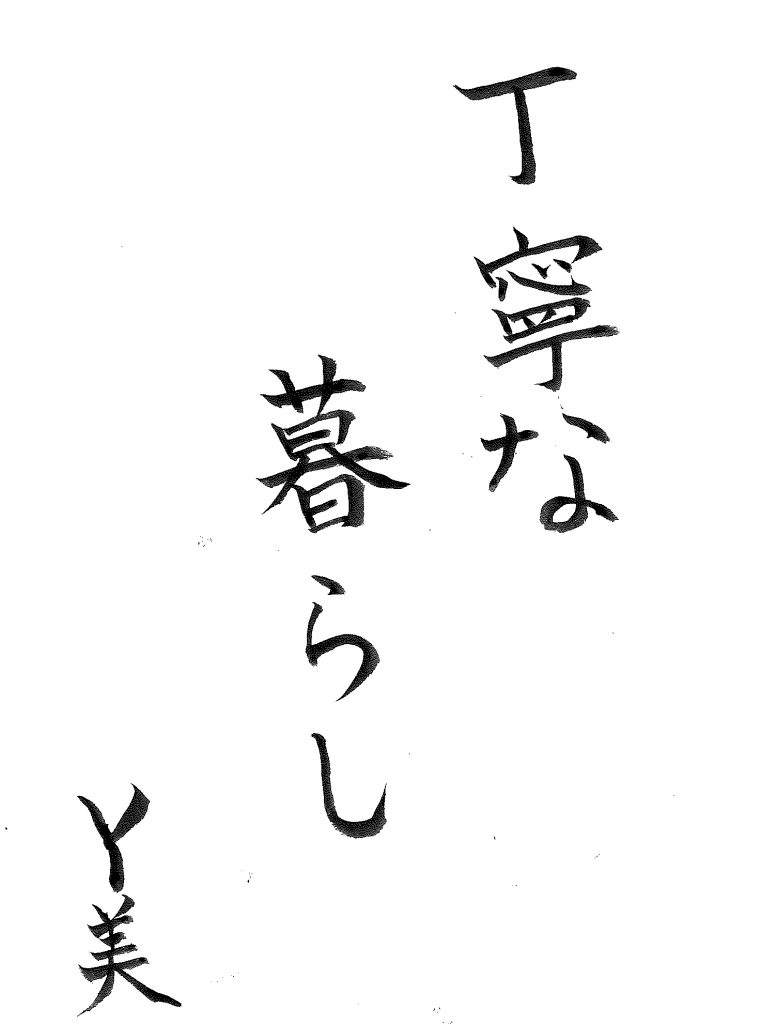 丁寧な
暮らし
Y美